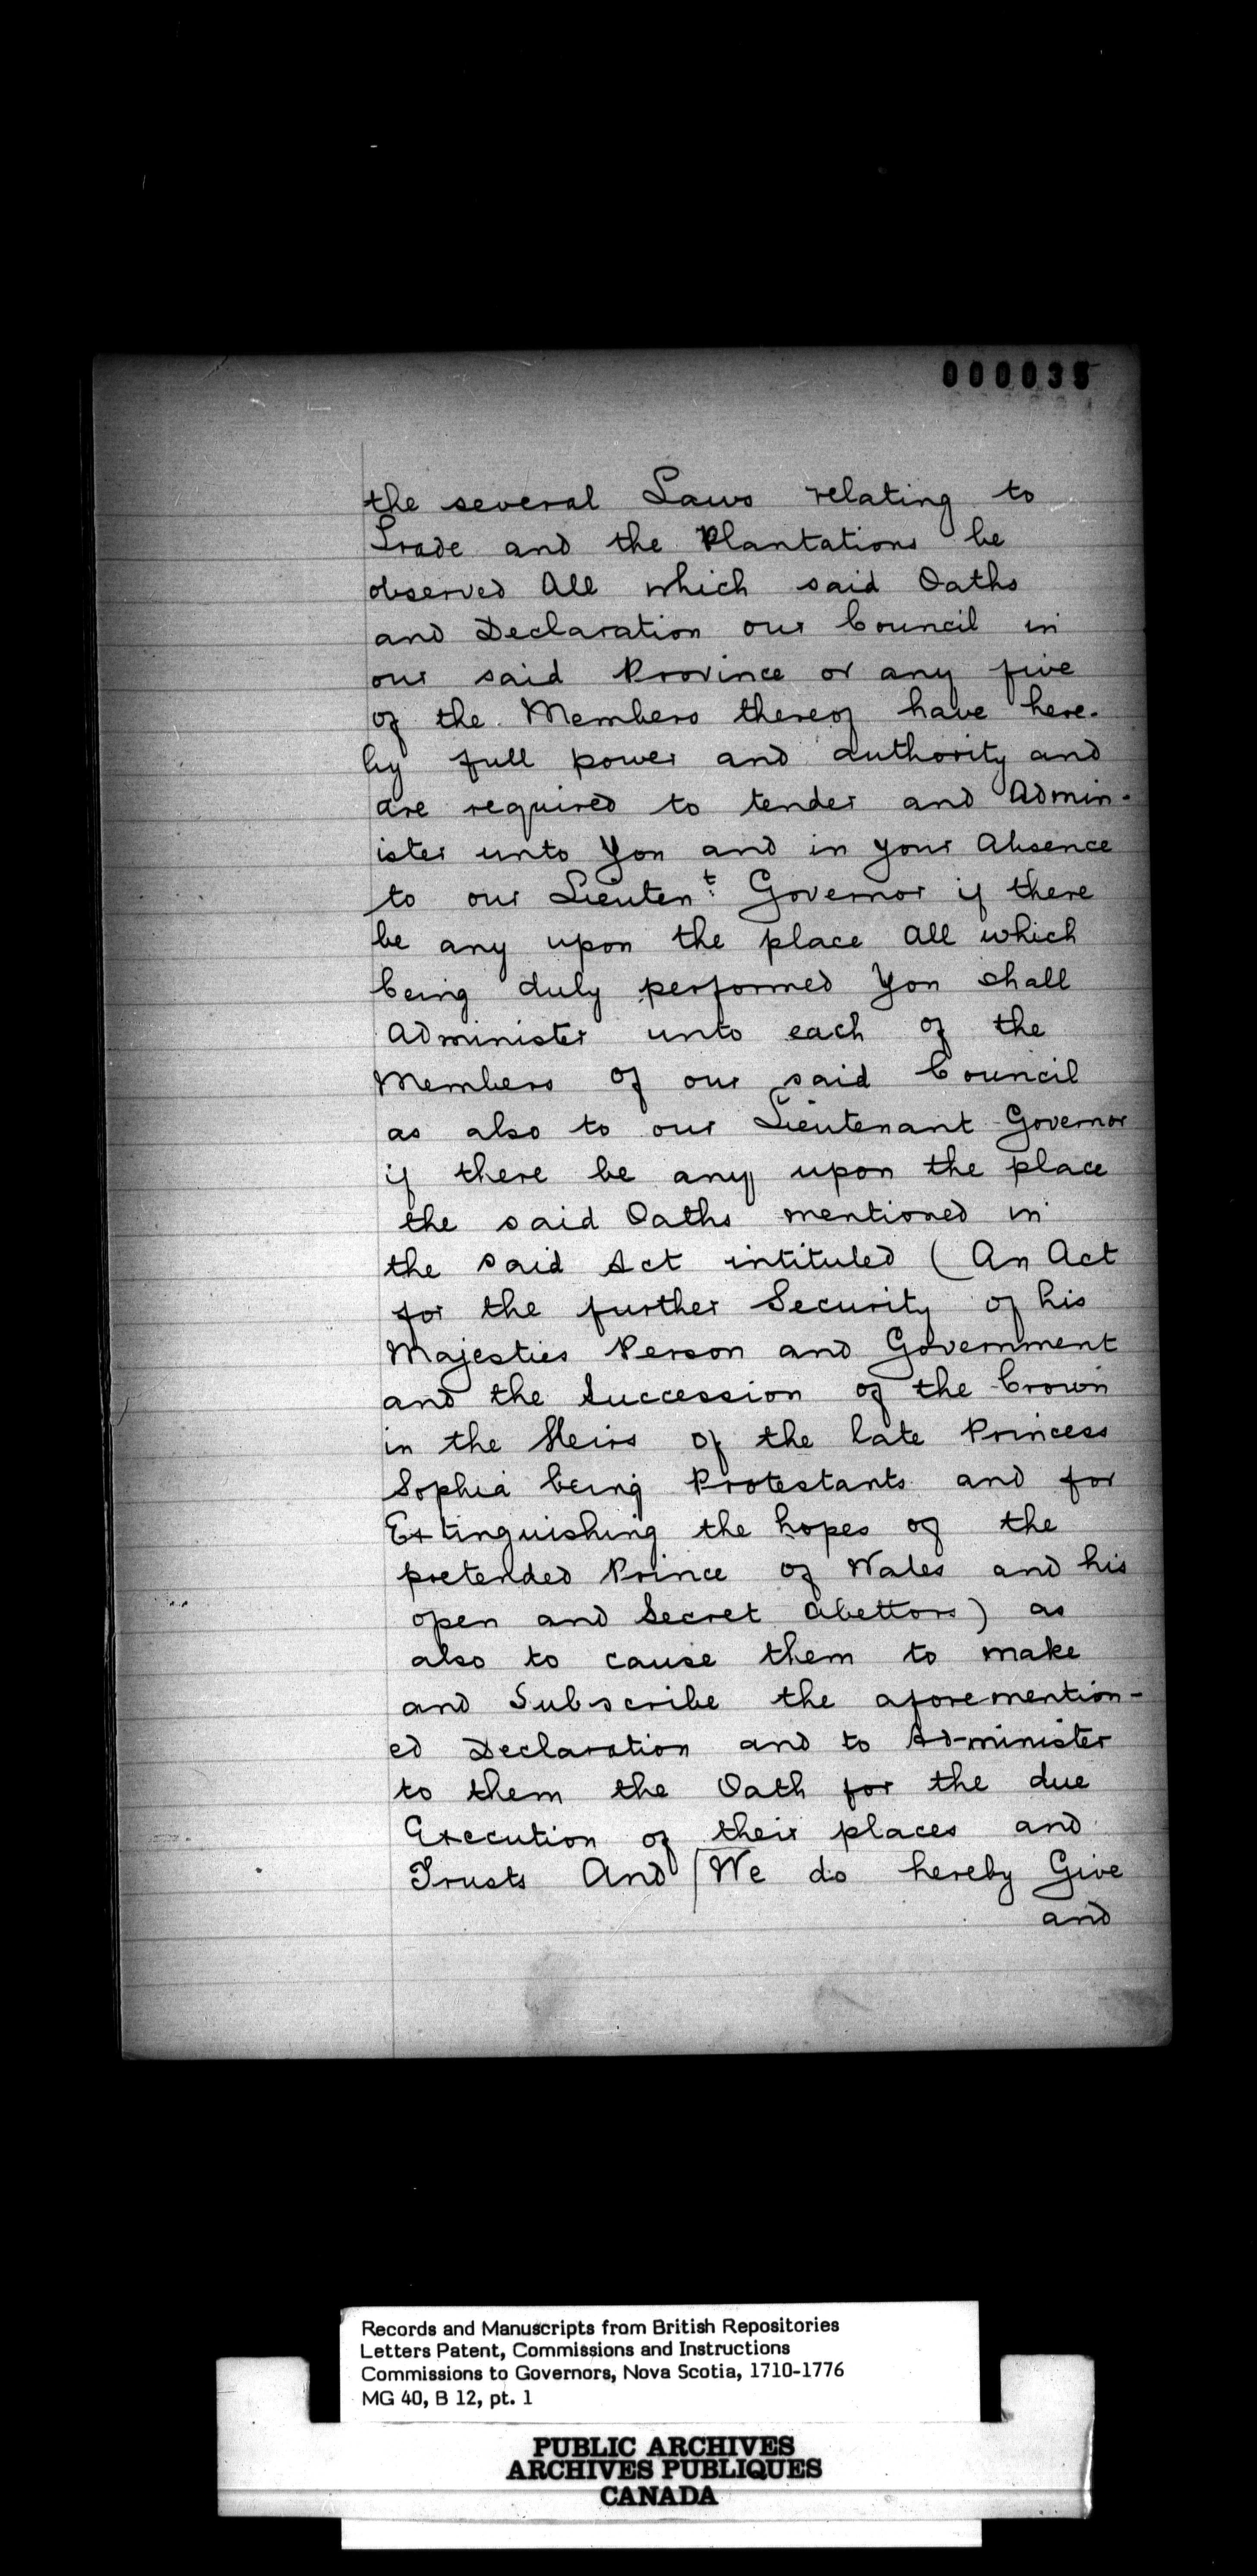 000035
the several Laws relating to
Trade and the Plantations be
observed All which said Oaths
and Declaration our Council in
our said Province or any five
of the Members thereof have here-
by full power and authority and
are required to tender and Admin-
ister unto You and in your Absence
to our Lieuten.t Governor if there
be any upon the place All which
being duly performed You shall
Administer unto each of the
Members of our said Council
as also to our Lieutenant Governor
if there be any upon the place
the said Oaths mentioned in
the said Act intituled (An Act
for the further Security of his
Majesties Person and Government
and the Succession of the Crown
in the Heirs of the late Princess
Sophia being Protestants and for
Extinguishing the hopes of the
pretended Prince of Wales and his
open and Secret abettors) as
also to cause them to make
and Subscribe the aforemention-
ed Declaration and to Administer
to them the Oath for the due
Execution of their places and
Trusts And We do hereby Give
and
Records and Manuscripts from British Repositories
Letters Patent, Commissions and Instructions
Commissions to Governors, Nova Scotia, 1710-1776
MG 40, B 12, pt. 1
PUBLIC ARCHIVES
ARCHIVES PUBLIQUES
CANADA